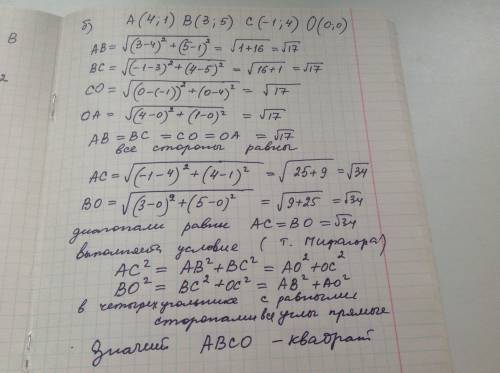 б) A(4;1) B(3;5) C(-1;4) O(0;0)
B
AB = √(3-4)² + (5-1)² = √1+16 = √17
BC = √(-1-3)² + (4-5)² = √16+1 = √17
CO = √(0-(-1))² + (0-4)² = √17
OA = √(4-0)² + (1-0)² = √17
AB = BC = CO = OA = √17
все стороны равны
AC = √(-1-4)² + (4-1)² = √25+9 = √34
BO = √(3-0)² + (5-0)² = √9+25 = √34
диагонали равны AC = BO = √34
выполняется условие (т. Пифагора)
AC² = AB² + BC² = AO² + OC²
BO² = BC² + OC² = AB² + AO²
в четырехугольнике с равными
сторонами все углы прямые
Значит ABCO - квадрат